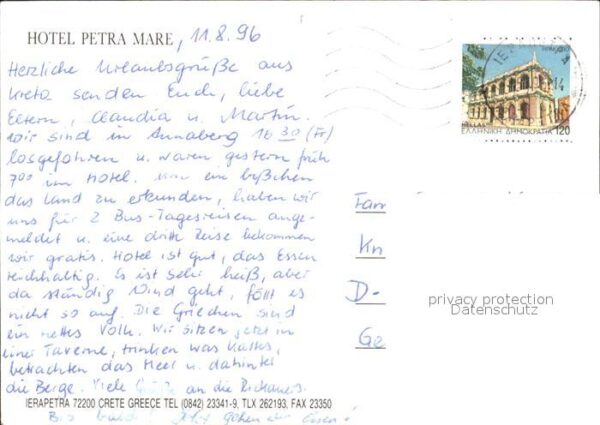 HOTEL PETRA MARE, 11.8.96
Herzliche Urlaubsgrüße aus
Kreta senden Euch, liebe
Eltern, Claudia u. Martin.
Wir sind in Annaberg 16 30 (Fr)
losgefahren u. waren gestern früh
7 00 im Hotel. Um ein bißchen
das Land zu erkunden, haben wir
uns für 2 Bus-Tagesreisen ange-
meldet u. eine dritte Reise bekommen
wir gratis. Hotel ist gut, das Essen
reichhaltig. Es ist sehr heiß, aber
da ständig Wind geht, fällt es
nicht so auf. Die Griechen sind
ein nettes Volk. Wir sitzen jetzt in
einer Taverne, trinken was Kaltes,
betrachten das Meer u. dahinter
die Berge. Viele Grüße an die
IERAPETRA 72200 CRETE GREECE TEL (0842) 23341-9, TLX 262193, FAX 23350
Bis bald! Jetzt gehen wir essen!
ΕΛΛΗΝΙΚΗ ΔΗΜΟΚΡΑΤΙΑ 120
HELLAS
Fam
Kn
D-
Ge
privacy protection
Datenschutz